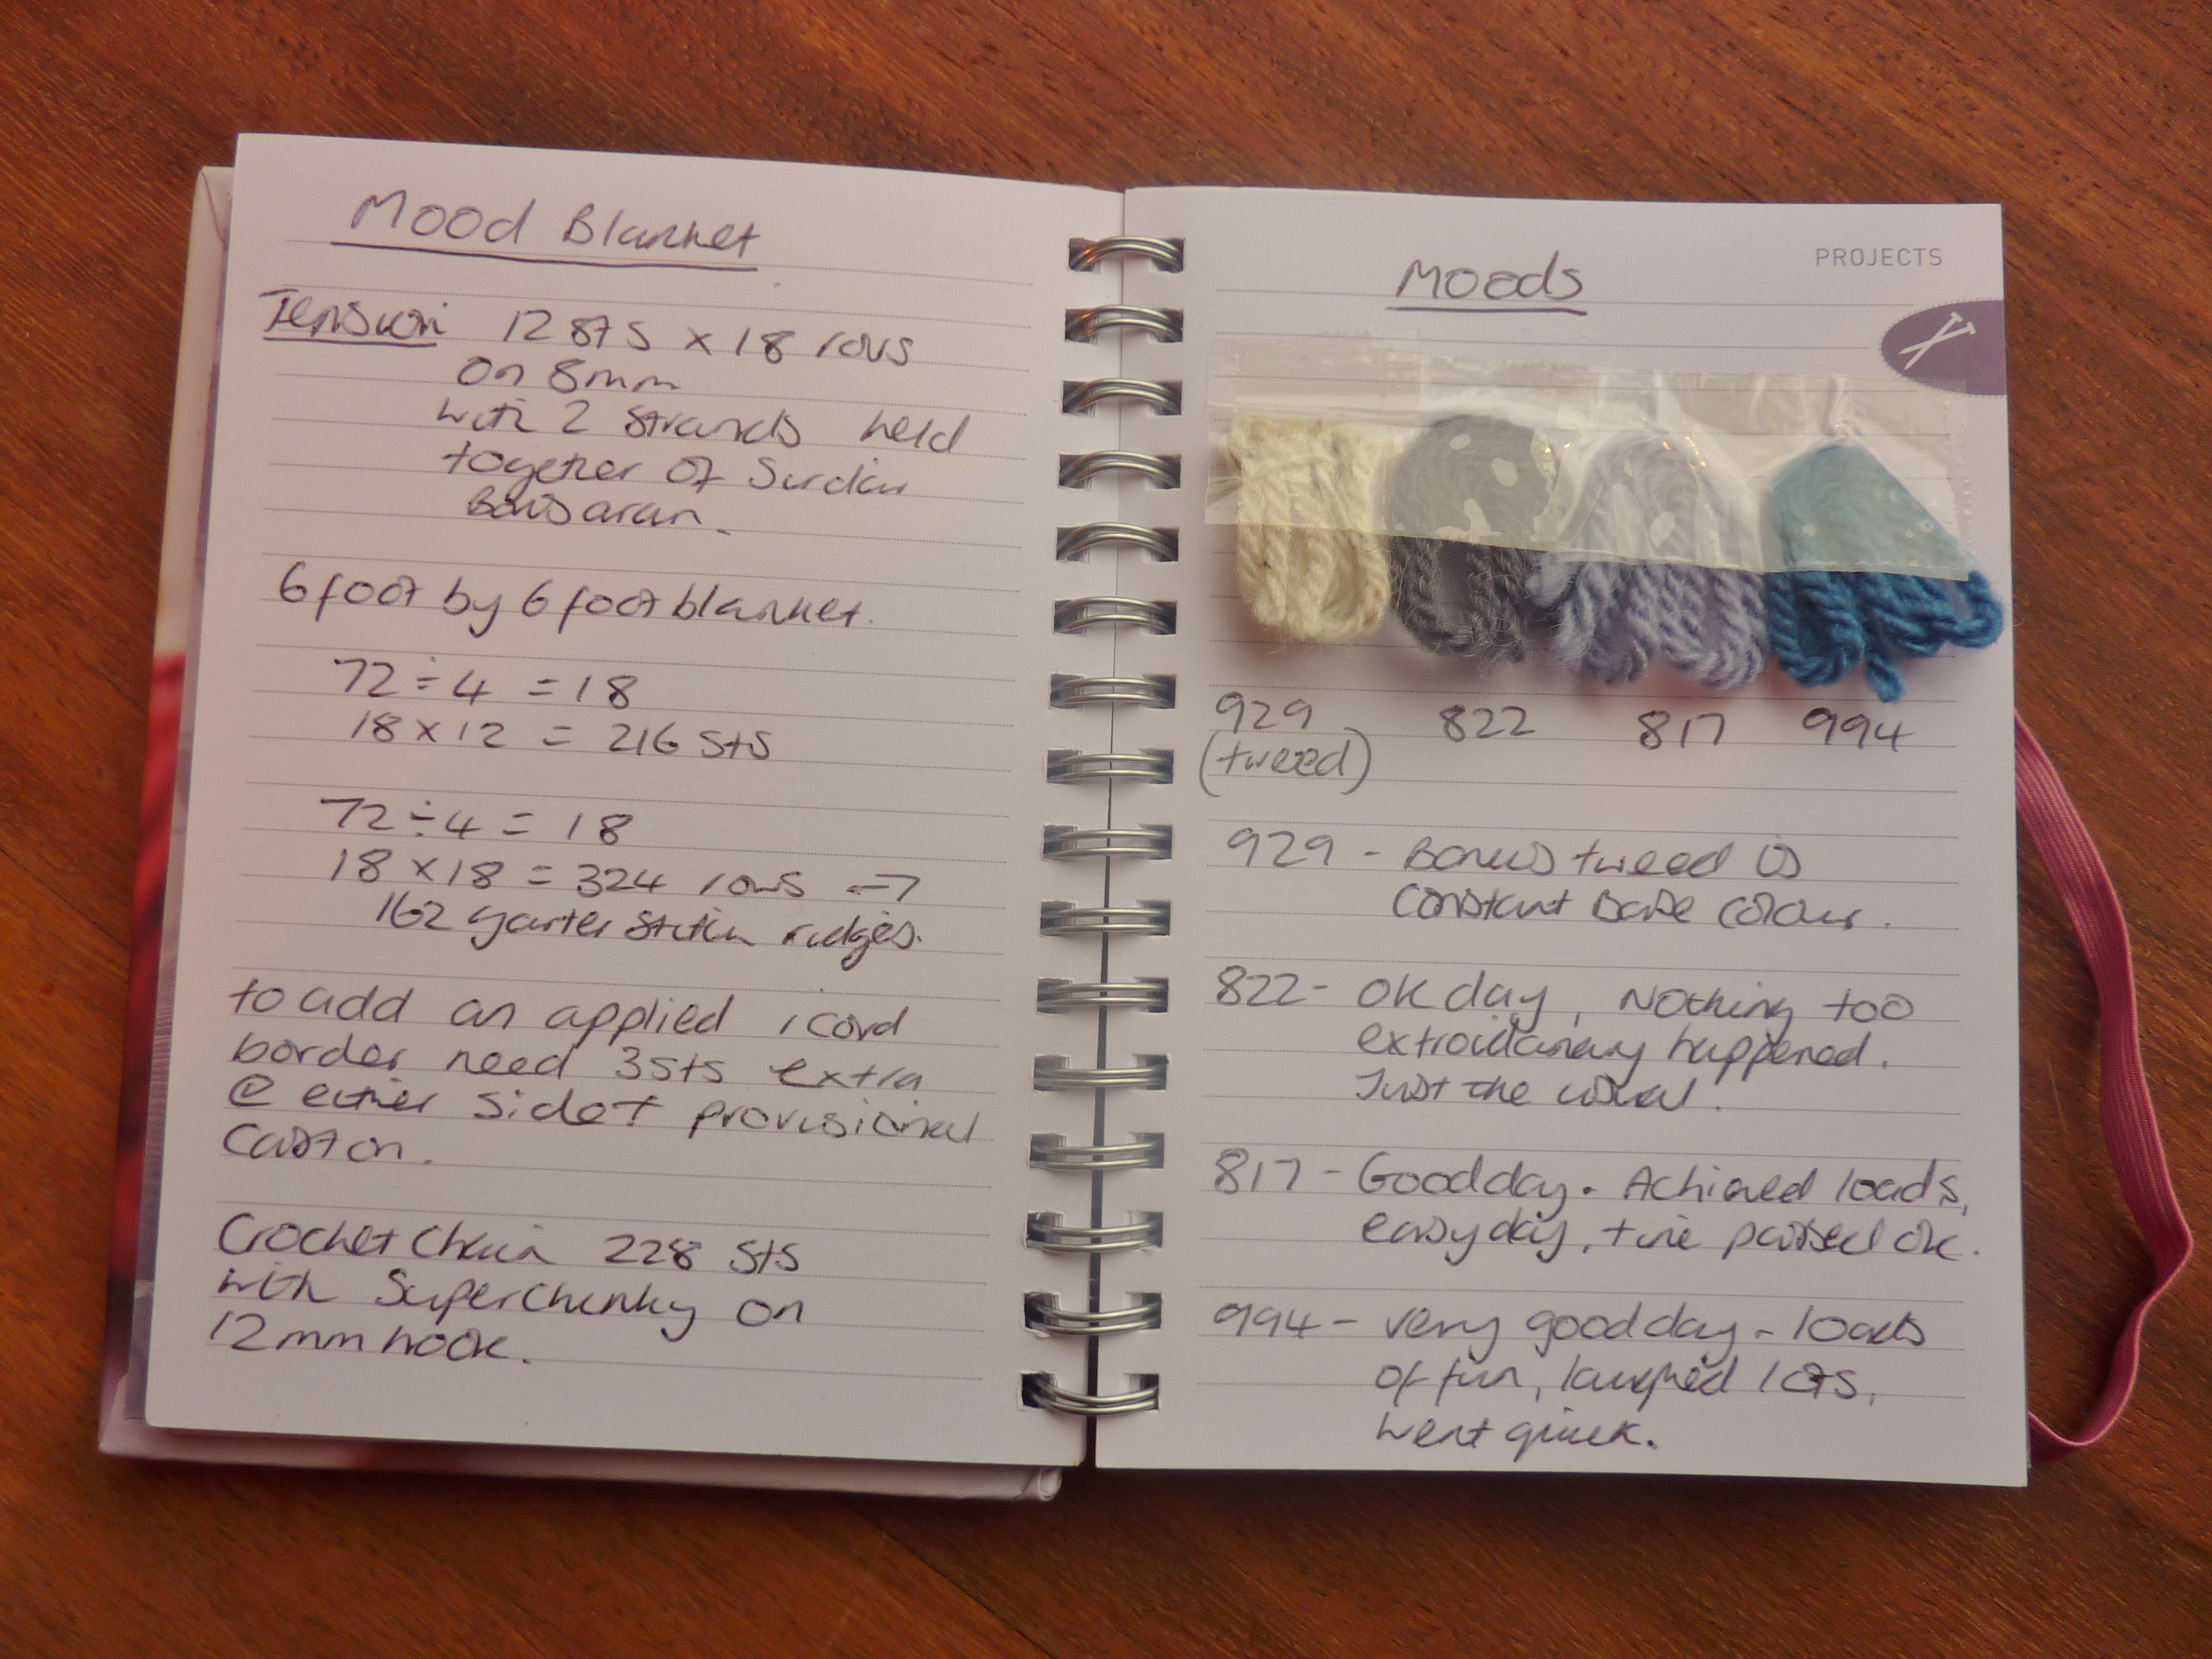 Mood Blanket
Tension 12 STS x 18 rows
on 8mm
with 2 strands held
together of Sirdar
Bonus aran.
6 foot by 6 foot blanket.
72 ÷ 4 = 18
18 x 12 = 216 sts
72 ÷ 4 = 18
18 x 18 = 324 rows =>
162 garter stitch ridges.
to add an applied icord
border need 3sts extra
@ either side + provisional
cast on.
Crochet Chain 228 sts
with Superchunky on
12mm hook.
PROJECTS
Moods
929 822 817 994
(tweed)
929 - Bonus tweed is
constant base colour.
822 - OK day, Nothing too
happened.
Just the usual.
817 - Good day. Achieved loads,
easy day, time passed ok.
994 - very good day - loads
of fun, laughed lots,
went quick.